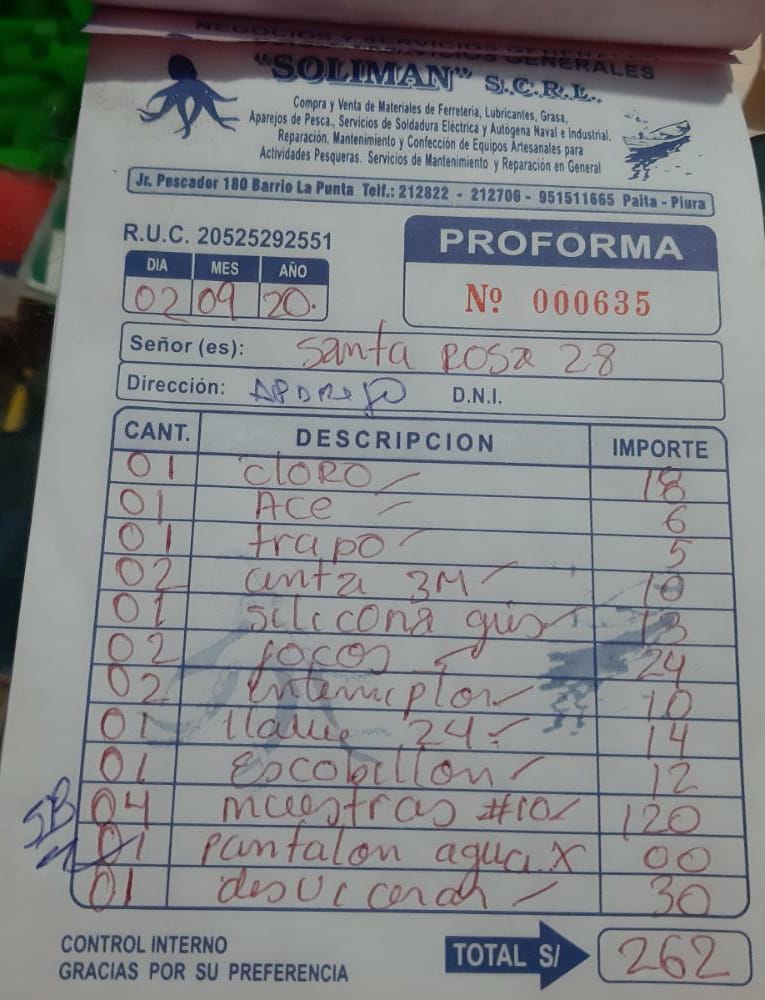 NEGOCIOS Y SERVICIOS GENERALES
"SOLIMAN" S.C.R.L.
Compra y Venta de Materiales de Ferretería, Lubricantes, Grasa,
Aparejos de Pesca., Servicios de Soldadura Eléctrica y Autógena Naval e Industrial.
Reparación, Mantenimiento y Confección de Equipos Artesanales para
Actividades Pesqueras. Servicios de Mantenimiento y Reparación en General
Jr. Pescador 180 Barrio La Punta Telf.: 212822 - 212706 - 951511665 Paita - Piura
R.U.C. 20525292551
PROFORMA
DIA MES AÑO
02 09 20.
Nº 000635
Señor (es): Santa Rosa 28
Dirección: D.N.I.
CANT. DESCRIPCION IMPORTE
01 CLORO 18
01 Ace 6
01 trapo 5
02 3M 10
01 silicona gris 13
02 focos 24
02 10
01 llave 24 14
01 Escobillon 12
04 maestras #10 120
01 pantalon agua X 00
01 30
CONTROL INTERNO
GRACIAS POR SU PREFERENCIA
TOTAL S/ 262